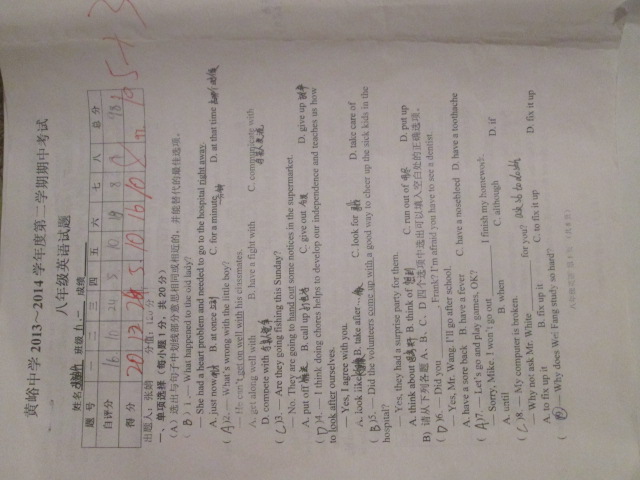 黄峪中学 2013～2014 学年度第二学期期中考试
八年级英语试题
姓名 班级 八二 成绩
题 号 一 二 三 四 五 六 七 八 总 分
自评分 16 11 24 5 10 19 8 98
得 分 20 12 5 10 16 10 105+3
出题人：张娟 分值：120分
一、单项选择（每小题 1 分，共 20 分）
(A) 选出与句子中划线部分意思相同或相近的，并能替代的最佳选项。
( B ) 1.—What happened to the old lady?
—She had a heart problem and needed to go to the hospital right away.
A. just now B. at once C. for a minute D. at that time
( A ) 2.—What's wrong with the little boy?
—He can't get on well with his classmates.
A. get along well with B. have a fight with C. communicate with
D. compete with
( C ) 3.—Are they going fishing this Sunday?
—No. They are going to hand out some notices in the supermarket.
A. put off B. call up C. give out D. give up
( D ) 4.—I think doing chores helps to develop our independence and teaches us how
to look after ourselves.
—Yes, I agree with you.
A. look like B. take after C. look for D. take care of
( B ) 5.—Did the volunteers come up with a good way to cheer up the sick kids in the
hospital?
—Yes, they had a surprise party for them.
A. think about B. think of C. run out of D. put up
B) 请从下列各题 A、B、C、D 四个选项中选出可以填入空白处的正确选项。
( D ) 6.—Did you Frank? I'm afraid you have to see a dentist.
—Yes, Mr. Wang. I'll go after school.
A. have a sore back B. have a fever C. have a nosebleed D. have a toothache
( A ) 7.—Let's go and play games, OK?
—Sorry, Mike. I won't go out I finish my homework.
A. until B. when C. although D. if
( C ) 8.—My computer is broken.
—Why not ask Mr. White for you?
A. to fix it up B. fix it up C. to fix it up D. fix it up
( ) —Why does Wei Fang study so hard?